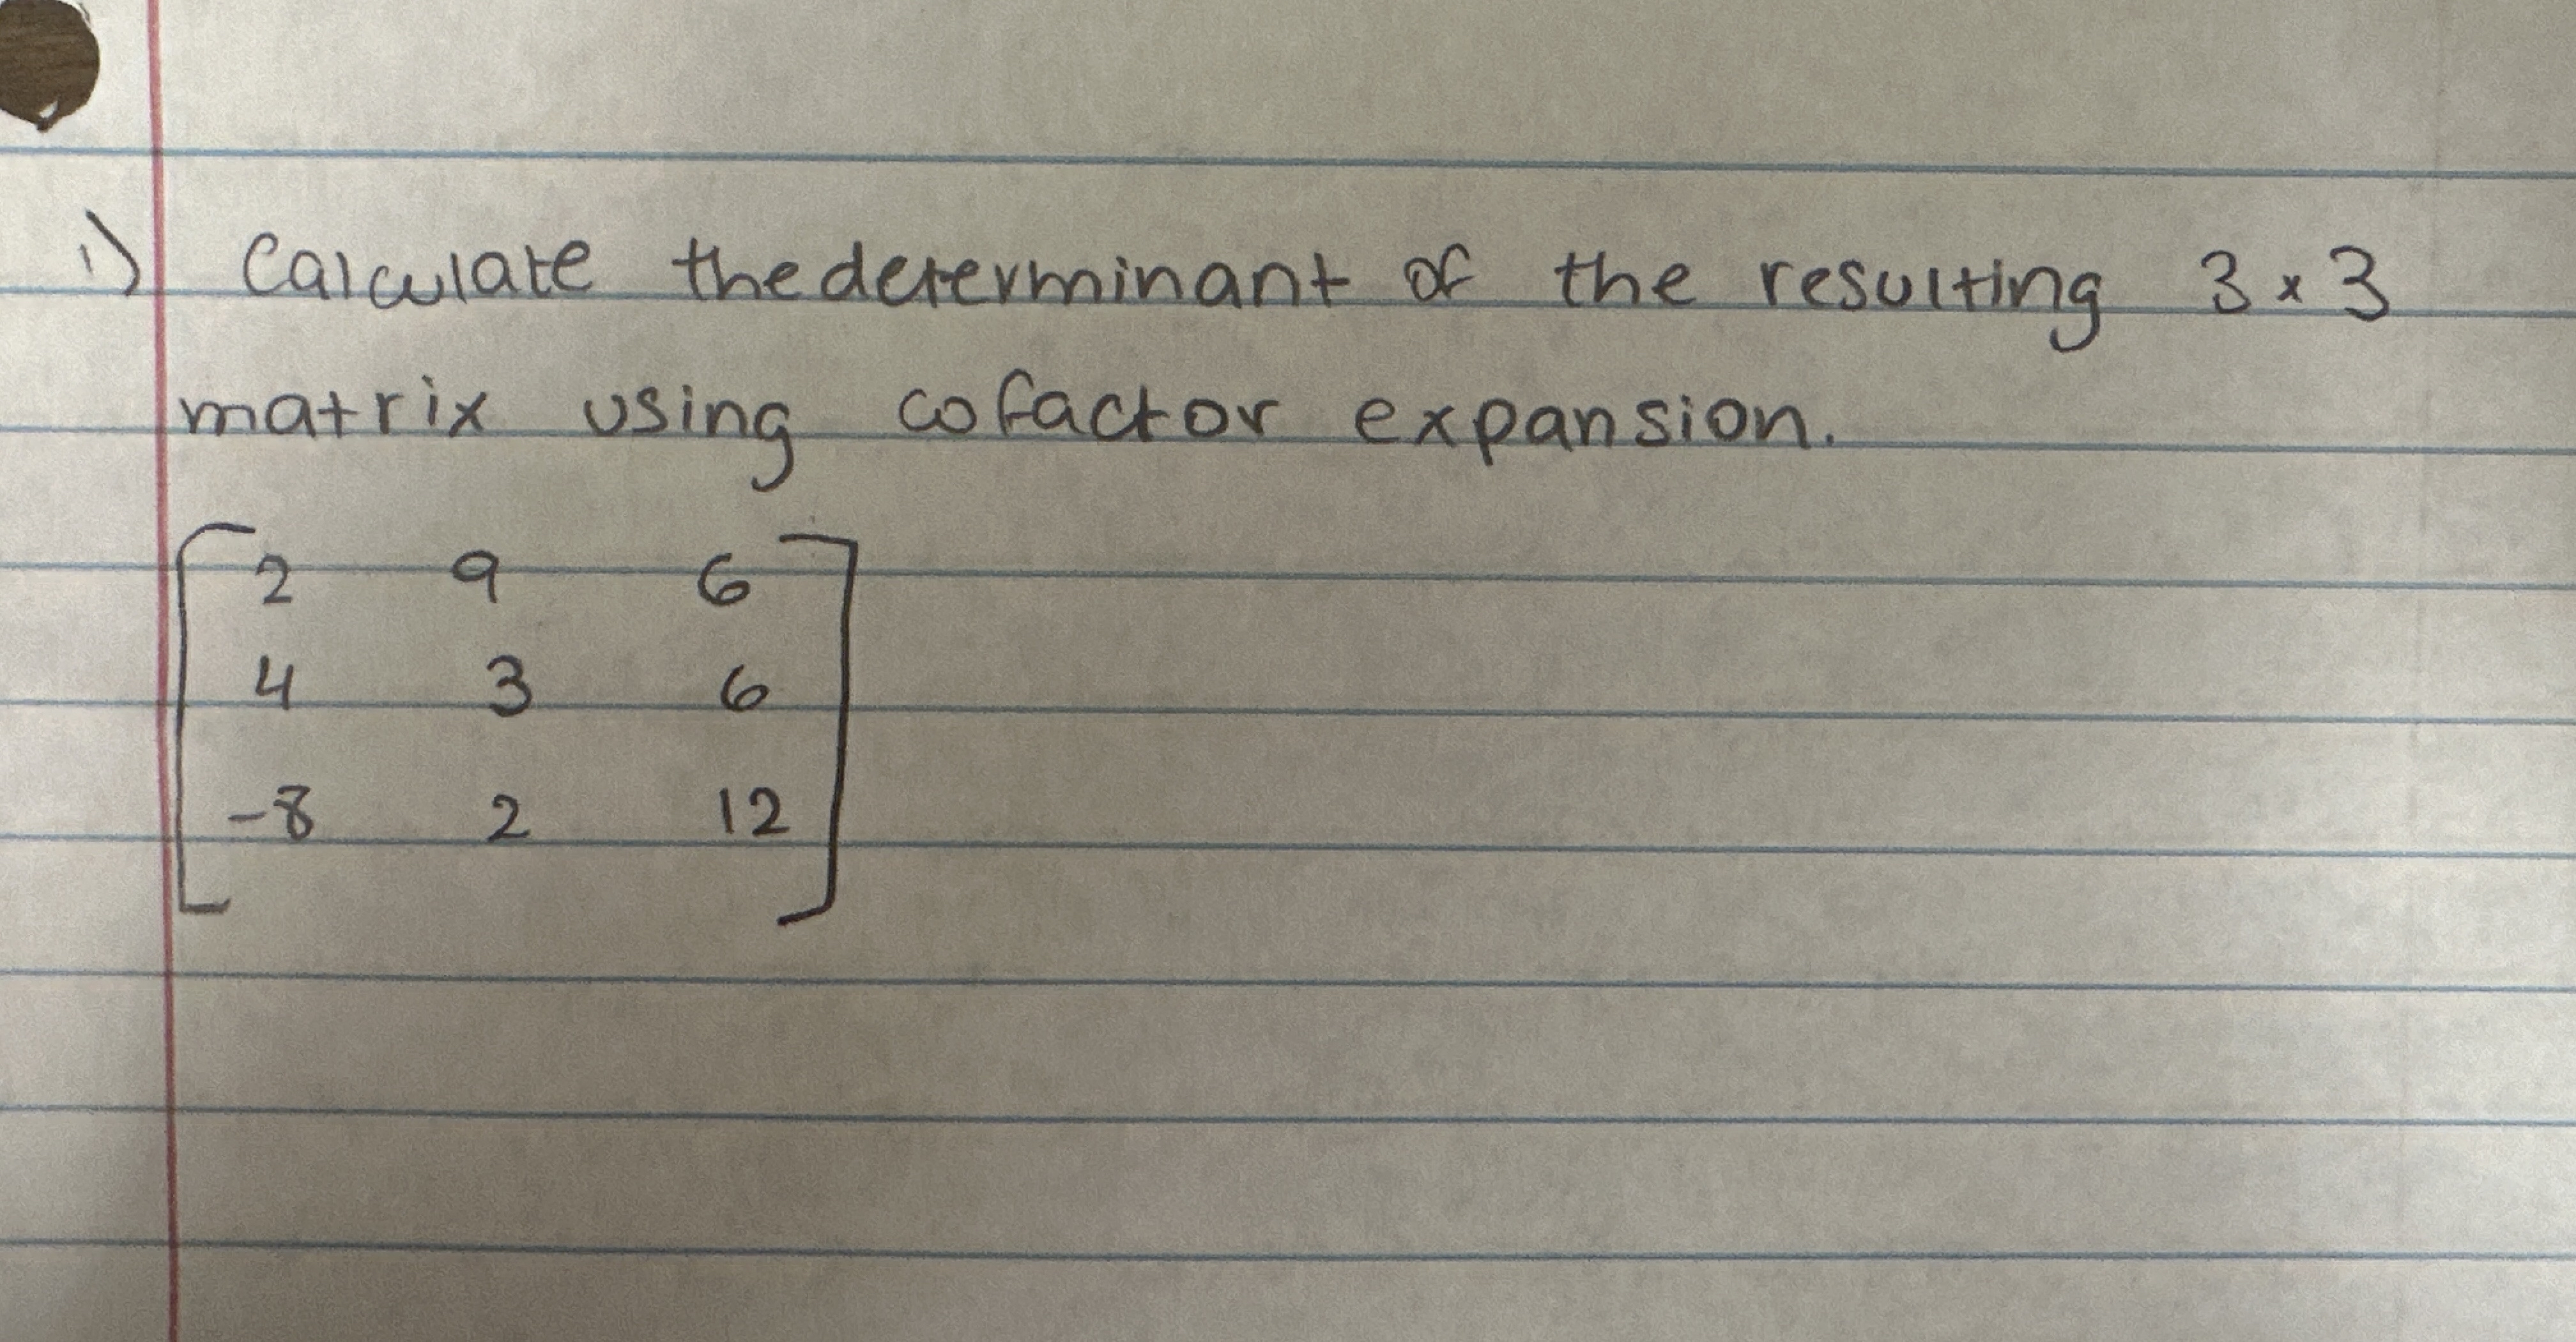 1) Calculate the determinant of the resulting 3 x 3
matrix using cofactor expansion.
2 9 6
4 3 6
-8 2 12